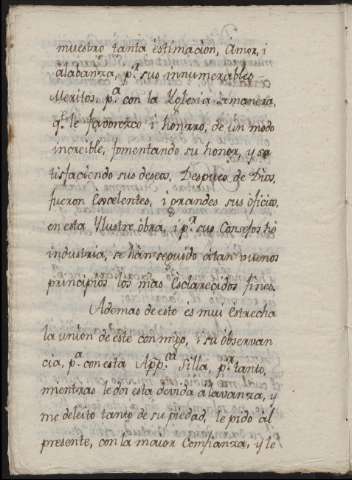 nuestro tanta estimacion, Amor, i
alabanza, p.r sus innumerables
Meritos, p.a con la Yglesia Romana,
q.e le favorezco i honrro, de un modo
increible, fomentando su honor, y sa
tisfaciendo sus deseos. Despues de Dios,
fueron Excelentes, i grandes sus oficios
en esta Ylustre obra, i p.r sus Consejos, è
industria, se hàn seguido à tan buenos
principios los mas Esclarecidos fines.
Ademas de esto es mui estrecha
la union de este con migo, i su observan
cia, p.a con esta App.ca Silla, p.r tanto,
mientras le doi esta devida alavanza, y
me deleito tanto de su piedad, le pido al
presente, con la maior Confianza, y le